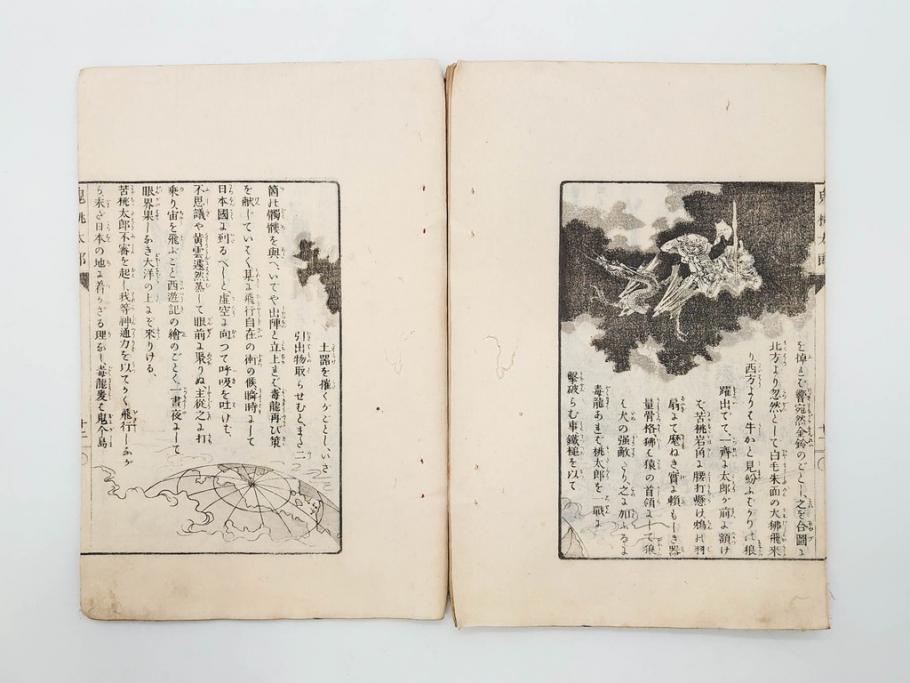 鬼桃太郎
を掉ふに、響宛然金鈴のごとし、之を合圖に
北方より忽然として白毛朱面の大狒飛來
り、西方よりして牛かと見紛ふばかりの狼
躍出でて、一齊に太郎が前に額け
ば、苦桃岩角に腰打懸け、鴆の羽
扇にて麾ねき、實に頼もしき器
量骨格、狒は猿の首領にして狼
は犬の強敵たり、之に加ふるに
毒龍あれば、桃太郎を一戰に
撃破らむ事、鐵槌を以て
土器を摧くがごとし、いざ
引出物取らせむと、まづ二
箇の髑髏を與へ、いでや出陣と立上れば、毒龍再び策
を獻じていはく、某に飛行自在の術の候、瞬時にして
日本國に到るべしと、虚空に向つて呼吸を吐けば、
不思議や黄雲蓬然蒸して眼前に聚りぬ、主從之に打
乘り、宙を飛ぶこと西遊記の繪のごとく、一晝夜にして
眼界果しなき大洋の上にぞ來りける。
苦桃太郎不審を起し、我等神通力を以てかく飛行しなが
ら、未だ日本の地に着かざる理なし、毒龍爰は鬼个島
鬼桃太郎
十二